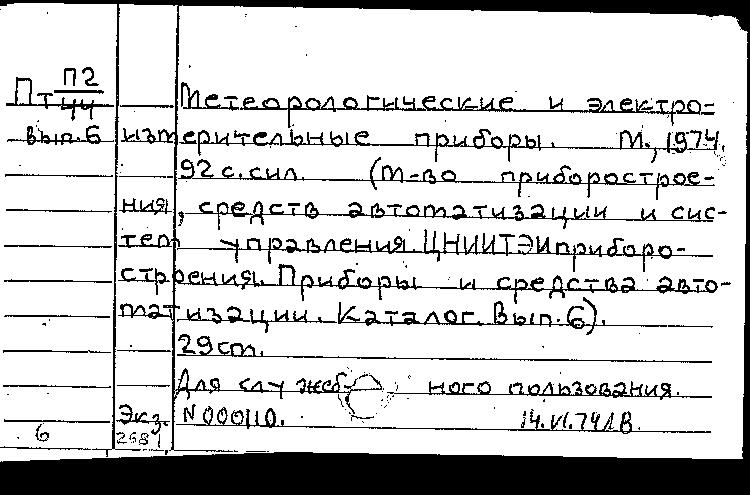 П2
Пт 44
Метеорологические и электро-
вып.6 измерительные приборы. М., 1974.
92 с. с ил. (М-во приборострое-
ния, средств автоматизации и сис-
тем управления. ЦНИИТЭИприборо-
строения. Приборы и средства авто-
матизации. Каталог. Вып. 6).
29 cm.
Для служебного пользования.
Экз. N 000110. 14.VI.74
6 2681